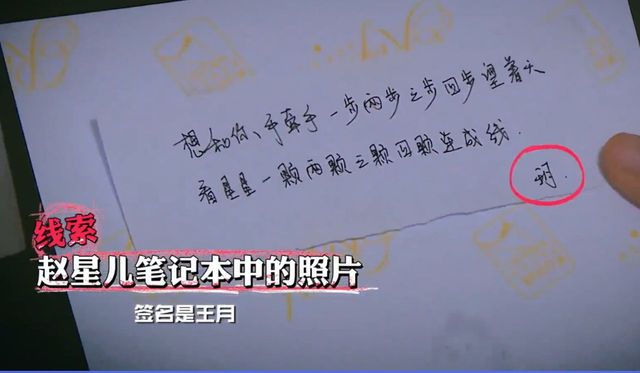 想和你、手牵手一步两步三步四步望着天
看星星一颗两颗三颗四颗连成线.
玥.
线索
赵星儿笔记本中的照片
签名是王月